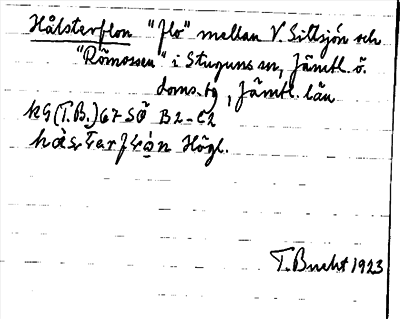 Hålsterflon "flo" mellan V. Siltsjön och
"Römossen" i Stuguns sn, Jämtl. ö.
doms. bg, Jämtl. län
kG (T.B.) 67 SÖ B2-C2
Högl.
T. Bucht 1923